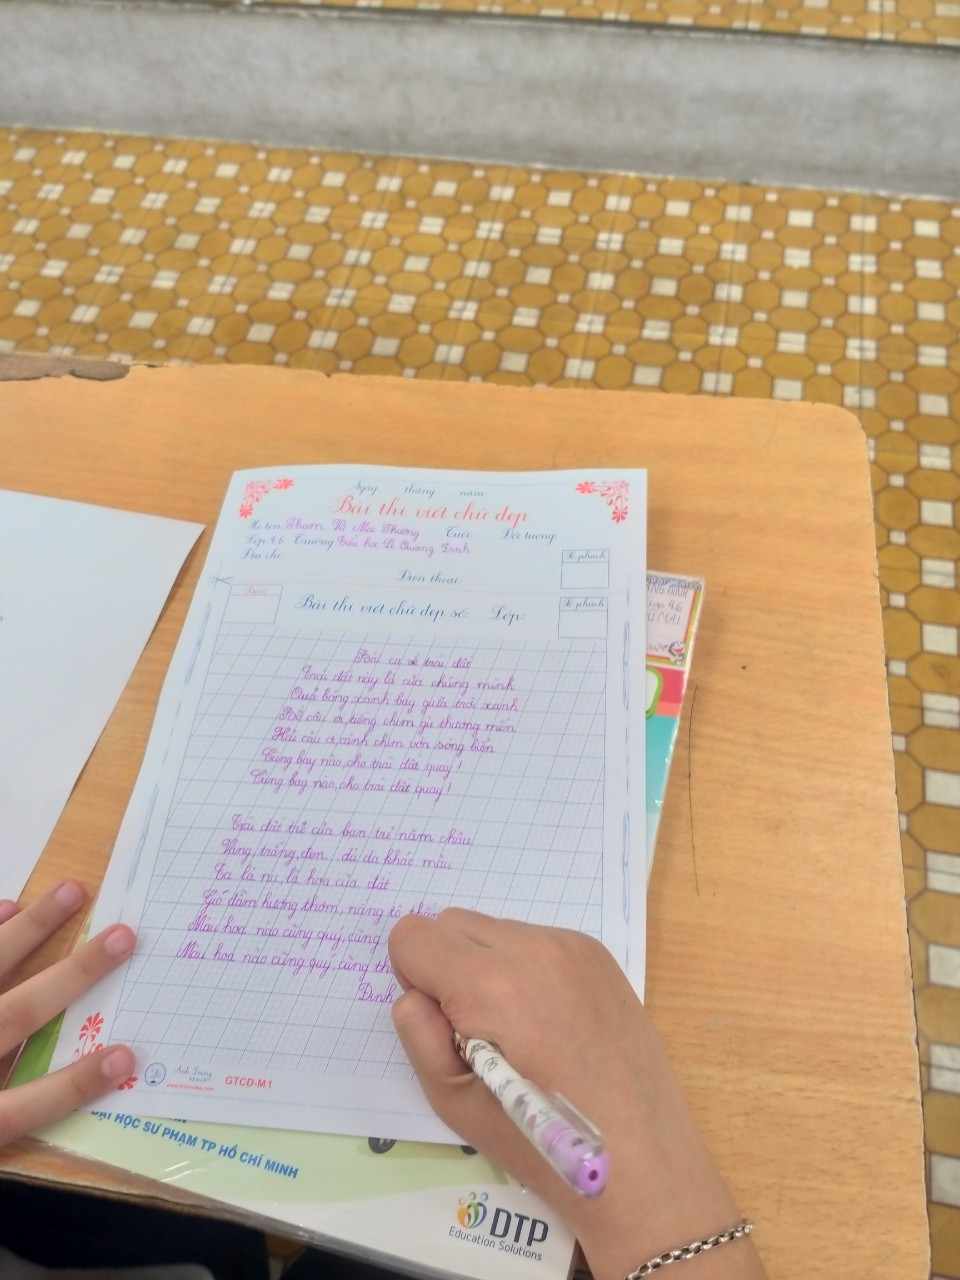 Ngày tháng năm
Bài thi viết chữ đẹp
Họ tên: Phạm Vũ Mai Thương Tuổi: Đối tượng:
Lớp 4.6 Trường Tiểu học Lê Quang Định
Địa chỉ:
Điện thoại:
Số phách
Điểm
Bài thi viết chữ đẹp số: Lớp:
Số phách
Bài ca về trái đất
Trái đất này là của chúng mình
Quả bóng xanh bay giữa trời xanh
Bồ câu ơi, tiếng chim gù thương mến
Hải âu ơi, cánh chim vờn sóng biển
Cùng bay nào, cho trái đất quay!
Cùng bay nào, cho trái đất quay!
Trái đất trẻ của bạn trẻ năm châu
Vàng, trắng, đen... dù da khác màu
Ta là nụ, là hoa của đất
Gió đẫm hương thơm, nắng tô thắm
Màu hoa nào cũng quý, cũng
Màu hoa nào cũng quý, cũng th
Định
Ánh Dương
GTCĐ-M1
ĐẠI HỌC SƯ PHẠM TP HỒ CHÍ MINH
DTP
Education Solutions